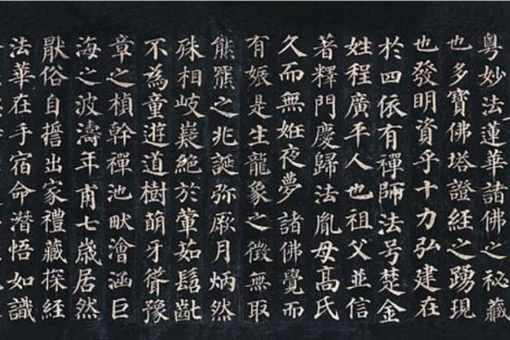 粤妙法蓮華諸佛之秘藏
也多寶佛塔證經之踴現
也發明資乎十力弘建在
於四依有禪師法号楚金
姓程廣平人也祖父並信
著釋門慶歸法胤母高氏
久而無姙夜夢諸佛覺而
有娠是生龍象之徵無取
熊羆之兆誕弥厥月炳然
殊相岐嶷絕於葷茹髫齓
不為童遊道樹萌牙聳豫
章之楨幹禪池畎澮涵巨
海之波濤年甫七歲居然
猒俗自誓出家禮藏探經
法華在手宿命潛悟如識